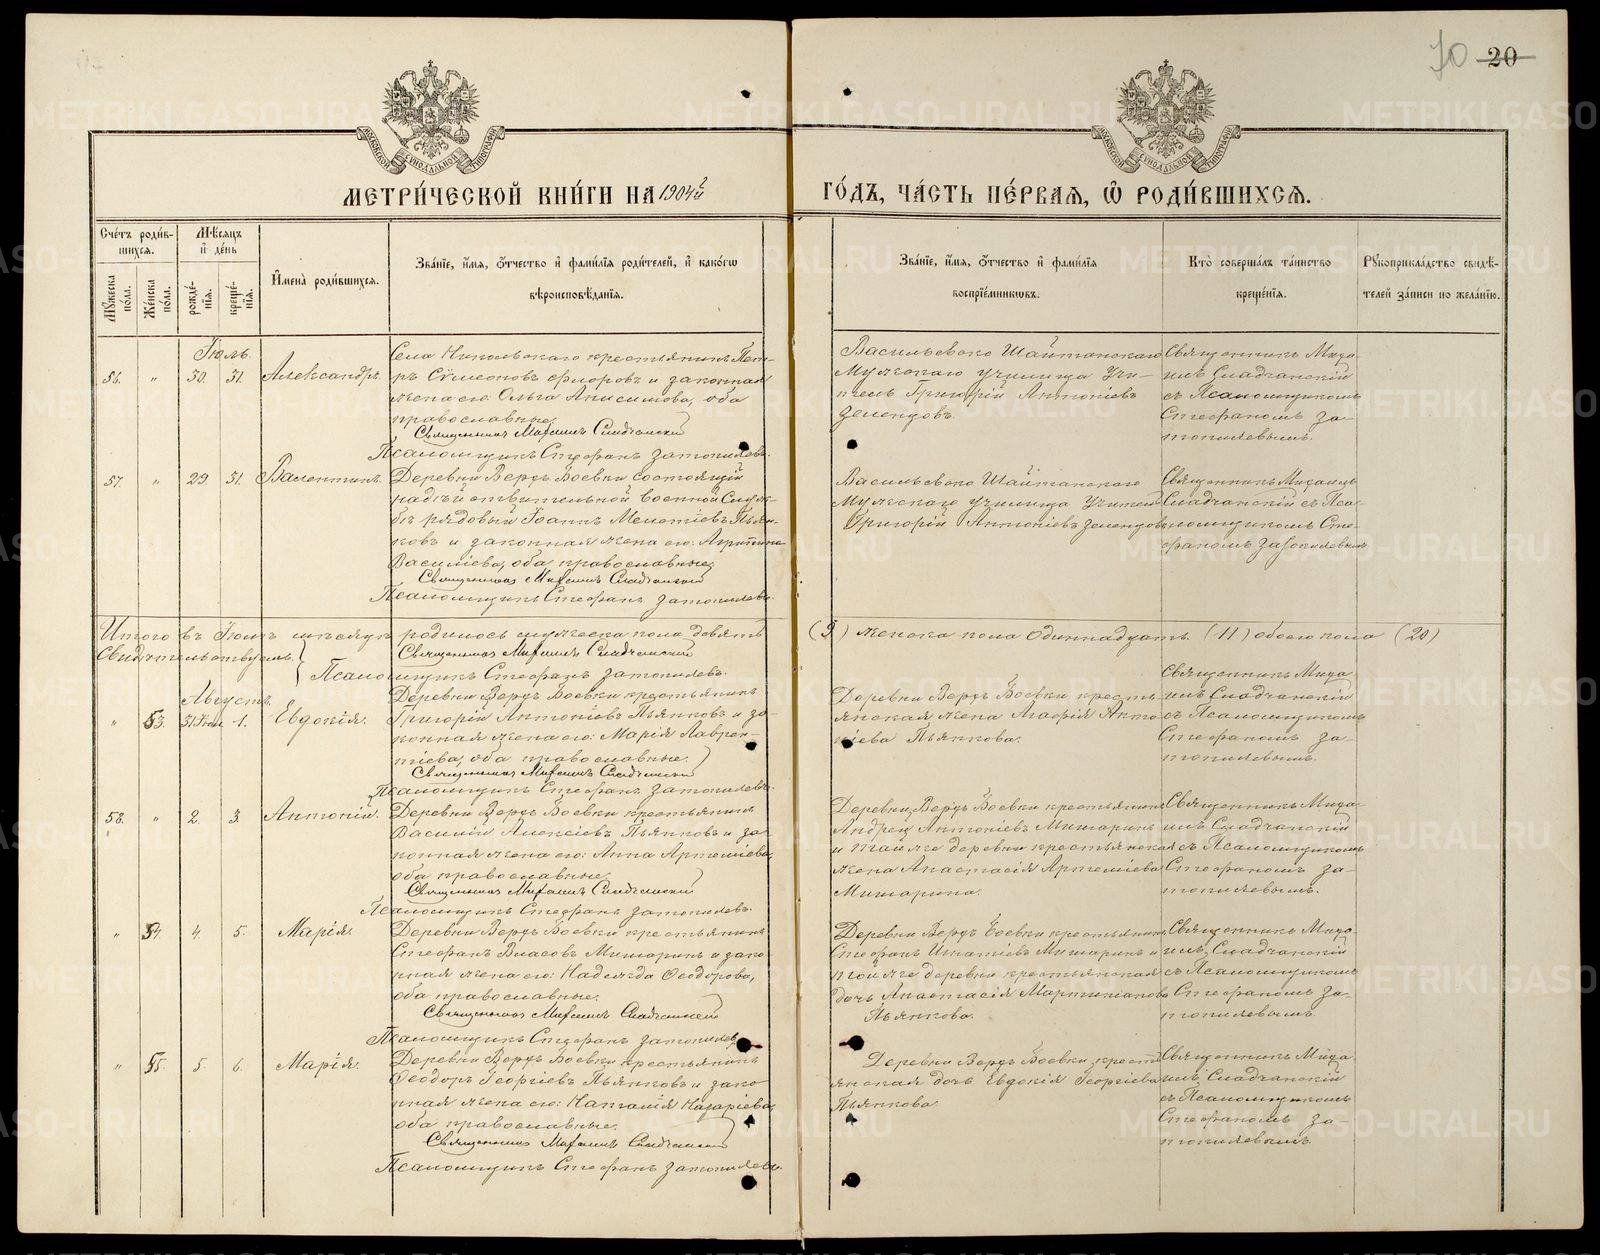 70 20
МЕТРИ́ЧЕСКОЙ КНИ́ГИ НА 1904й
ГО́ДЪ, ЧА́СТЬ ПЕ́РВАЯ, Ѽ РОДИ́ВШИХСЯ.
МОСКОВСКОЙ СѴНОДАЛЬНОЙ ТИПОГРАФІИ
МОСКОВСКОЙ СѴНОДАЛЬНОЙ ТИПОГРАФІИ
Сче́тъ роди́в-
шихся.
Мꙋжеска
по́ла.
Же́нска
по́ла.
Мѣ́сяцъ
и҆ де́нь
рожде́-
нїѧ.
креще́-
нїѧ.
И҆мена̀ роди́вшихся.
Зва́нїе, и҆́мя, ѻ҆́тчество и҆ фами́лїя роди́телей, и҆ како́гѡ
вѣроисповѣ́данїя.
Зва́нїе, и҆́мя, ѻ҆́тчество и҆ фами́лїя
воспрїе́мникѡвъ.
Кто̀ соверша́лъ та́инство
креще́нїя.
Рꙋкоприкла́дство свидѣ́-
телей за́писи по жела́нїю.
Іюль.
56. " 30. 31. Александръ.
Села Никольскаго крестьянинъ Пет-
ръ Сѵмеоновъ Флоровъ и законная
жена его Ольга Анисимова, оба
православные.
Священникъ Михаилъ Сладчанский
Псаломщикъ Стефанъ Затопляевъ.
Васильевско Шайтанскаго
Мужскаго училища Учи-
тель Григорій Антоніевъ
Зелендовъ.
Священникъ Миха-
илъ Сладчанскій
съ Псаломщикомъ
Стефаномъ За-
топляевымъ.
57. " 29. 31. Валентинъ.
Деревни Верхъ Боевки состоящій
на дѣйствительной военной Служ-
бѣ рядовый Іоаннъ Мелетіевъ Пьян-
ковъ и законная жена его: Агрипина
Василіева, оба православные,
Священникъ Михаилъ Сладчанский
Псаломщикъ Стефанъ Затопляевъ.
Васильевско Шайтанскаго
Мужскаго училища Учитель
Григорій Антоніевъ Зелендовъ
Священникъ Михаилъ
Сладчанскій съ Пса-
ломщикомъ Сте-
фаномъ Затопляевымъ.
Итого въ Іюлѣ мѣсяцѣ родилось мужеска пола девять (9) женска пола одиннадцать (11) обоего пола (20)
Свидѣтельствуемъ: Священникъ Михаилъ Сладчанский
Псаломщикъ Стефанъ Затопляевъ.
Августъ.
" 53. 31 Іюля 1. Евдокія.
Деревни Верхъ Боевки крестьянинъ
Григорій Антоніевъ Пьянковъ и за-
конная жена его: Марія Лаврен-
тіева, оба православные.
Священникъ Михаилъ Сладчанский
Псаломщикъ Стефанъ Затопляевъ.
Деревни Верхъ Боевки кресть-
янская жена Агафія Анто-
ніева Пьянкова.
Священникъ Миха-
илъ Сладчанскій
съ Псаломщикомъ
Стефаномъ За-
топляевымъ.
58. " 2. 3 Антоній.
Деревни Верхъ Боевки крестьянинъ
Василій Алексіевъ Пьянковъ и за-
конная жена его: Анна Артеміева,
оба православные.
Священникъ Михаилъ Сладчанский
Псаломщикъ Стефанъ Затопляевъ.
Деревни Верхъ Боевки крестьянинъ
Андрей Антоніевъ Мишаринъ
и той же деревни крестьянская
жена Анастасія Артеміева
Мишарина.
Священникъ Миха-
илъ Сладчанскій
съ Псаломщикомъ
Стефаномъ За-
топляевымъ.
" 54. 4. 5. Марія.
Деревни Верхъ Боевки крестьянинъ
Стефанъ Власовъ Мишаринъ и зако-
нная жена его: Надежда Ѳеодорова,
оба православные.
Священникъ Михаилъ Сладчанский
Псаломщикъ Стефанъ Затопляевъ
Деревни Верхъ Боевки крестьянинъ
Стефанъ Игнатіевъ Мишаринъ и
той же деревни крестьянская
дочь Анастасія Мартиніанова
Пьянкова.
Священникъ Миха-
илъ Сладчанскій
съ Псаломщикомъ
Стефаномъ За-
топляевымъ.
" 55. 5. 6. Марія.
Деревни Верхъ Боевки крестьянинъ
Ѳеодоръ Георгіевъ Пьянковъ и зако-
нная жена его: Наталія Назаріева,
оба православные.
Священникъ Михаилъ Сладчанский
Псаломщикъ Стефанъ Затопляевъ.
Деревни Верхъ Боевки кресть-
янская дочь Евдокія Георгіева
Пьянкова
Священникъ Миха-
илъ Сладчанскій
съ Псаломщикомъ
Стефаномъ За-
топляевымъ.
METRIKI.GASO-URAL.RU